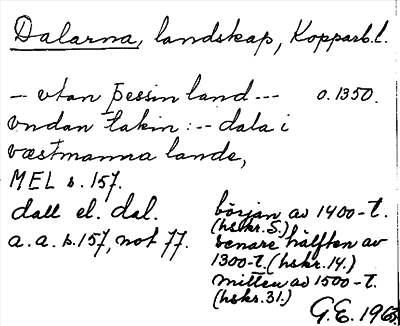 Dalarna, landskap, Kopparb.l.
— vtan þessin land --- o. 1350.
vndan takin : -- dala i
væstmanna lande,
MEL s. 157.
dall el. dal. början av 1400-t.
(hskr. S.)
a. a. s. 157, not 77. senare hälften av
1300-t. (hskr. 14.)
mitten av 1500-t.
(hskr. 31.)
G.E. 1965.